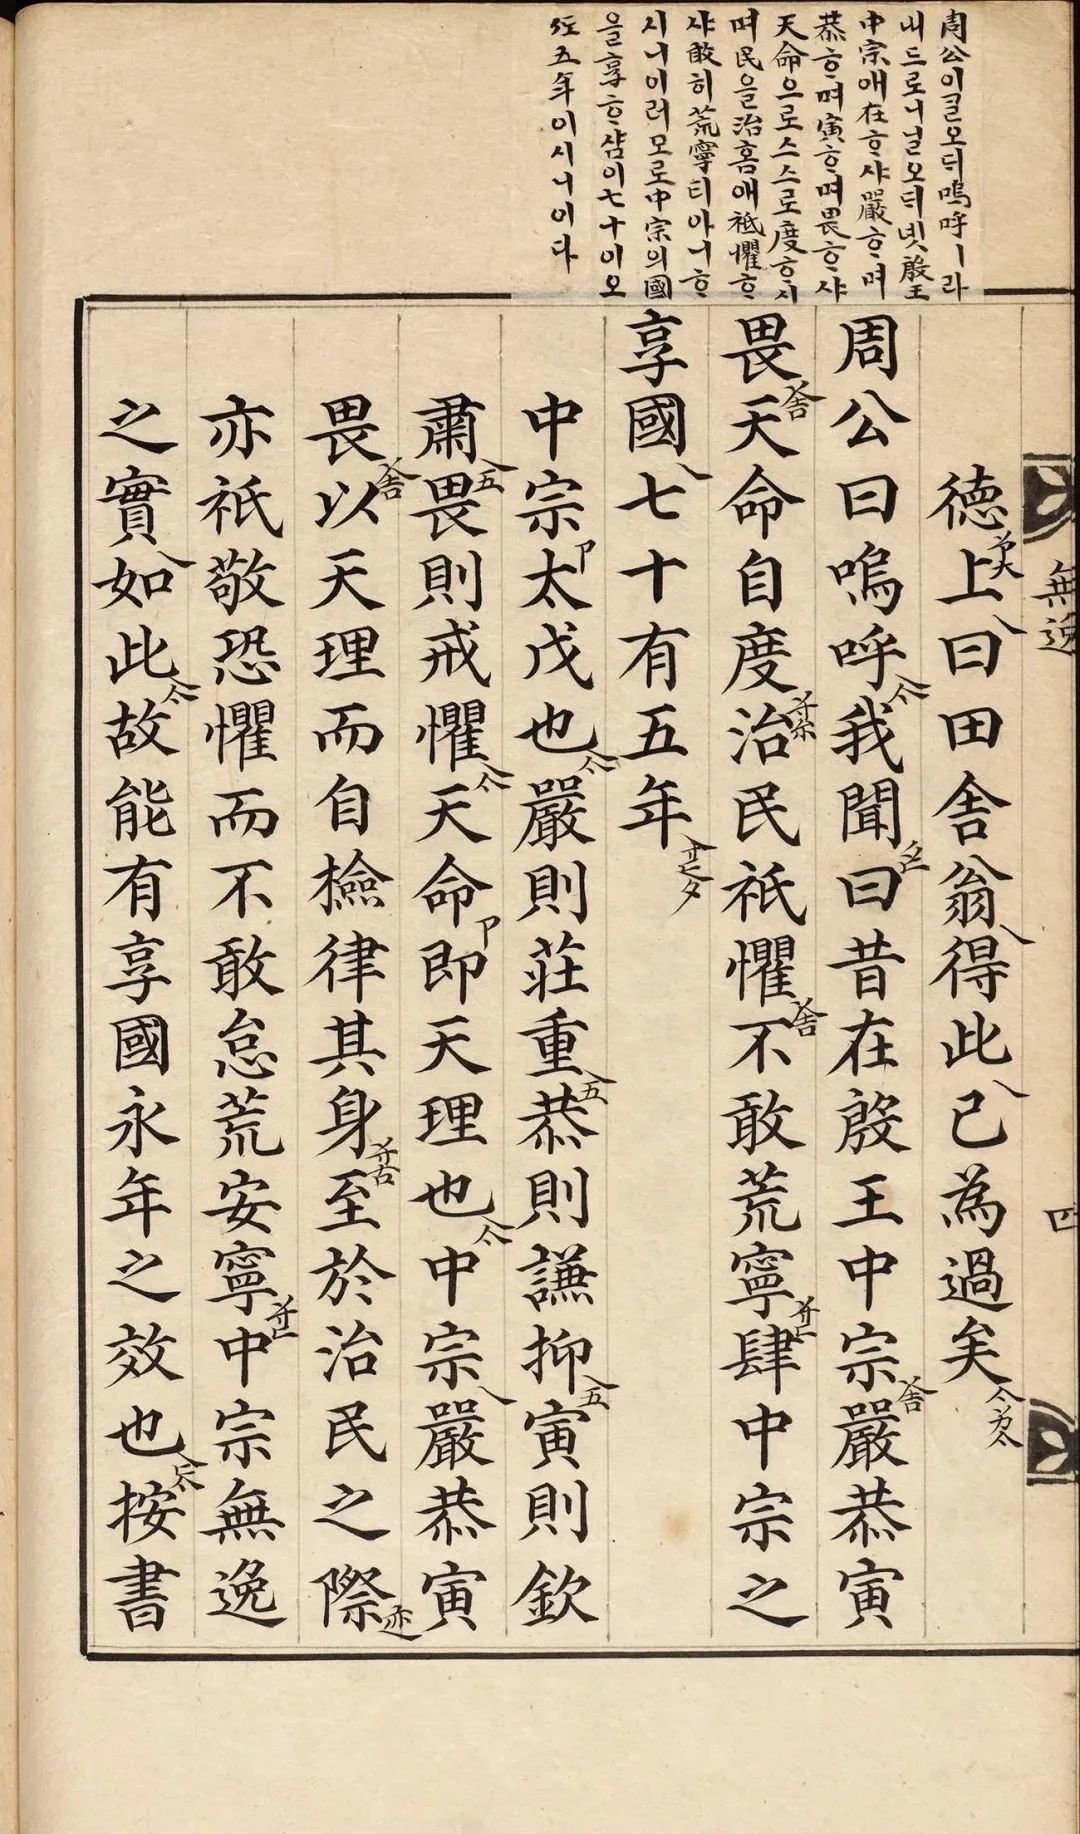 周公이ᄀᆞᆯ오ᄃᆡ嗚呼ㅣ라
내드로니닐오ᄃᆡ녯殷王
中宗애在ᄒᆞ샤嚴ᄒᆞ며
恭ᄒᆞ며寅ᄒᆞ며畏ᄒᆞ샤
天命으로스스로度ᄒᆞ시
며民을治홈애祗懼ᄒᆞ
샤敢히荒寧티아니ᄒᆞ
시니이러모로中宗의國
을享ᄒᆞ샴이七十이오
五年이시니이다
無逸
四
德上曰田舍翁得此已為過矣
周公曰嗚呼我聞曰昔在殷王中宗嚴恭寅
畏天命自度治民祇懼不敢荒寧肆中宗之
享國七十有五年
中宗太戊也嚴則莊重恭則謙抑寅則欽
肅畏則戒懼天命即天理也中宗嚴恭寅
畏以天理而自檢律其身至於治民之際
亦祇敬恐懼而不敢怠荒安寧中宗無逸
之實如此故能有享國永年之效也按書